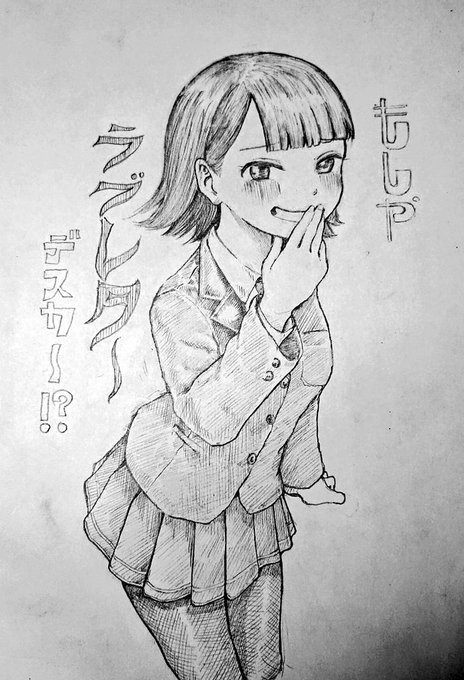 もしや
ラブレター
デスカ〜!?